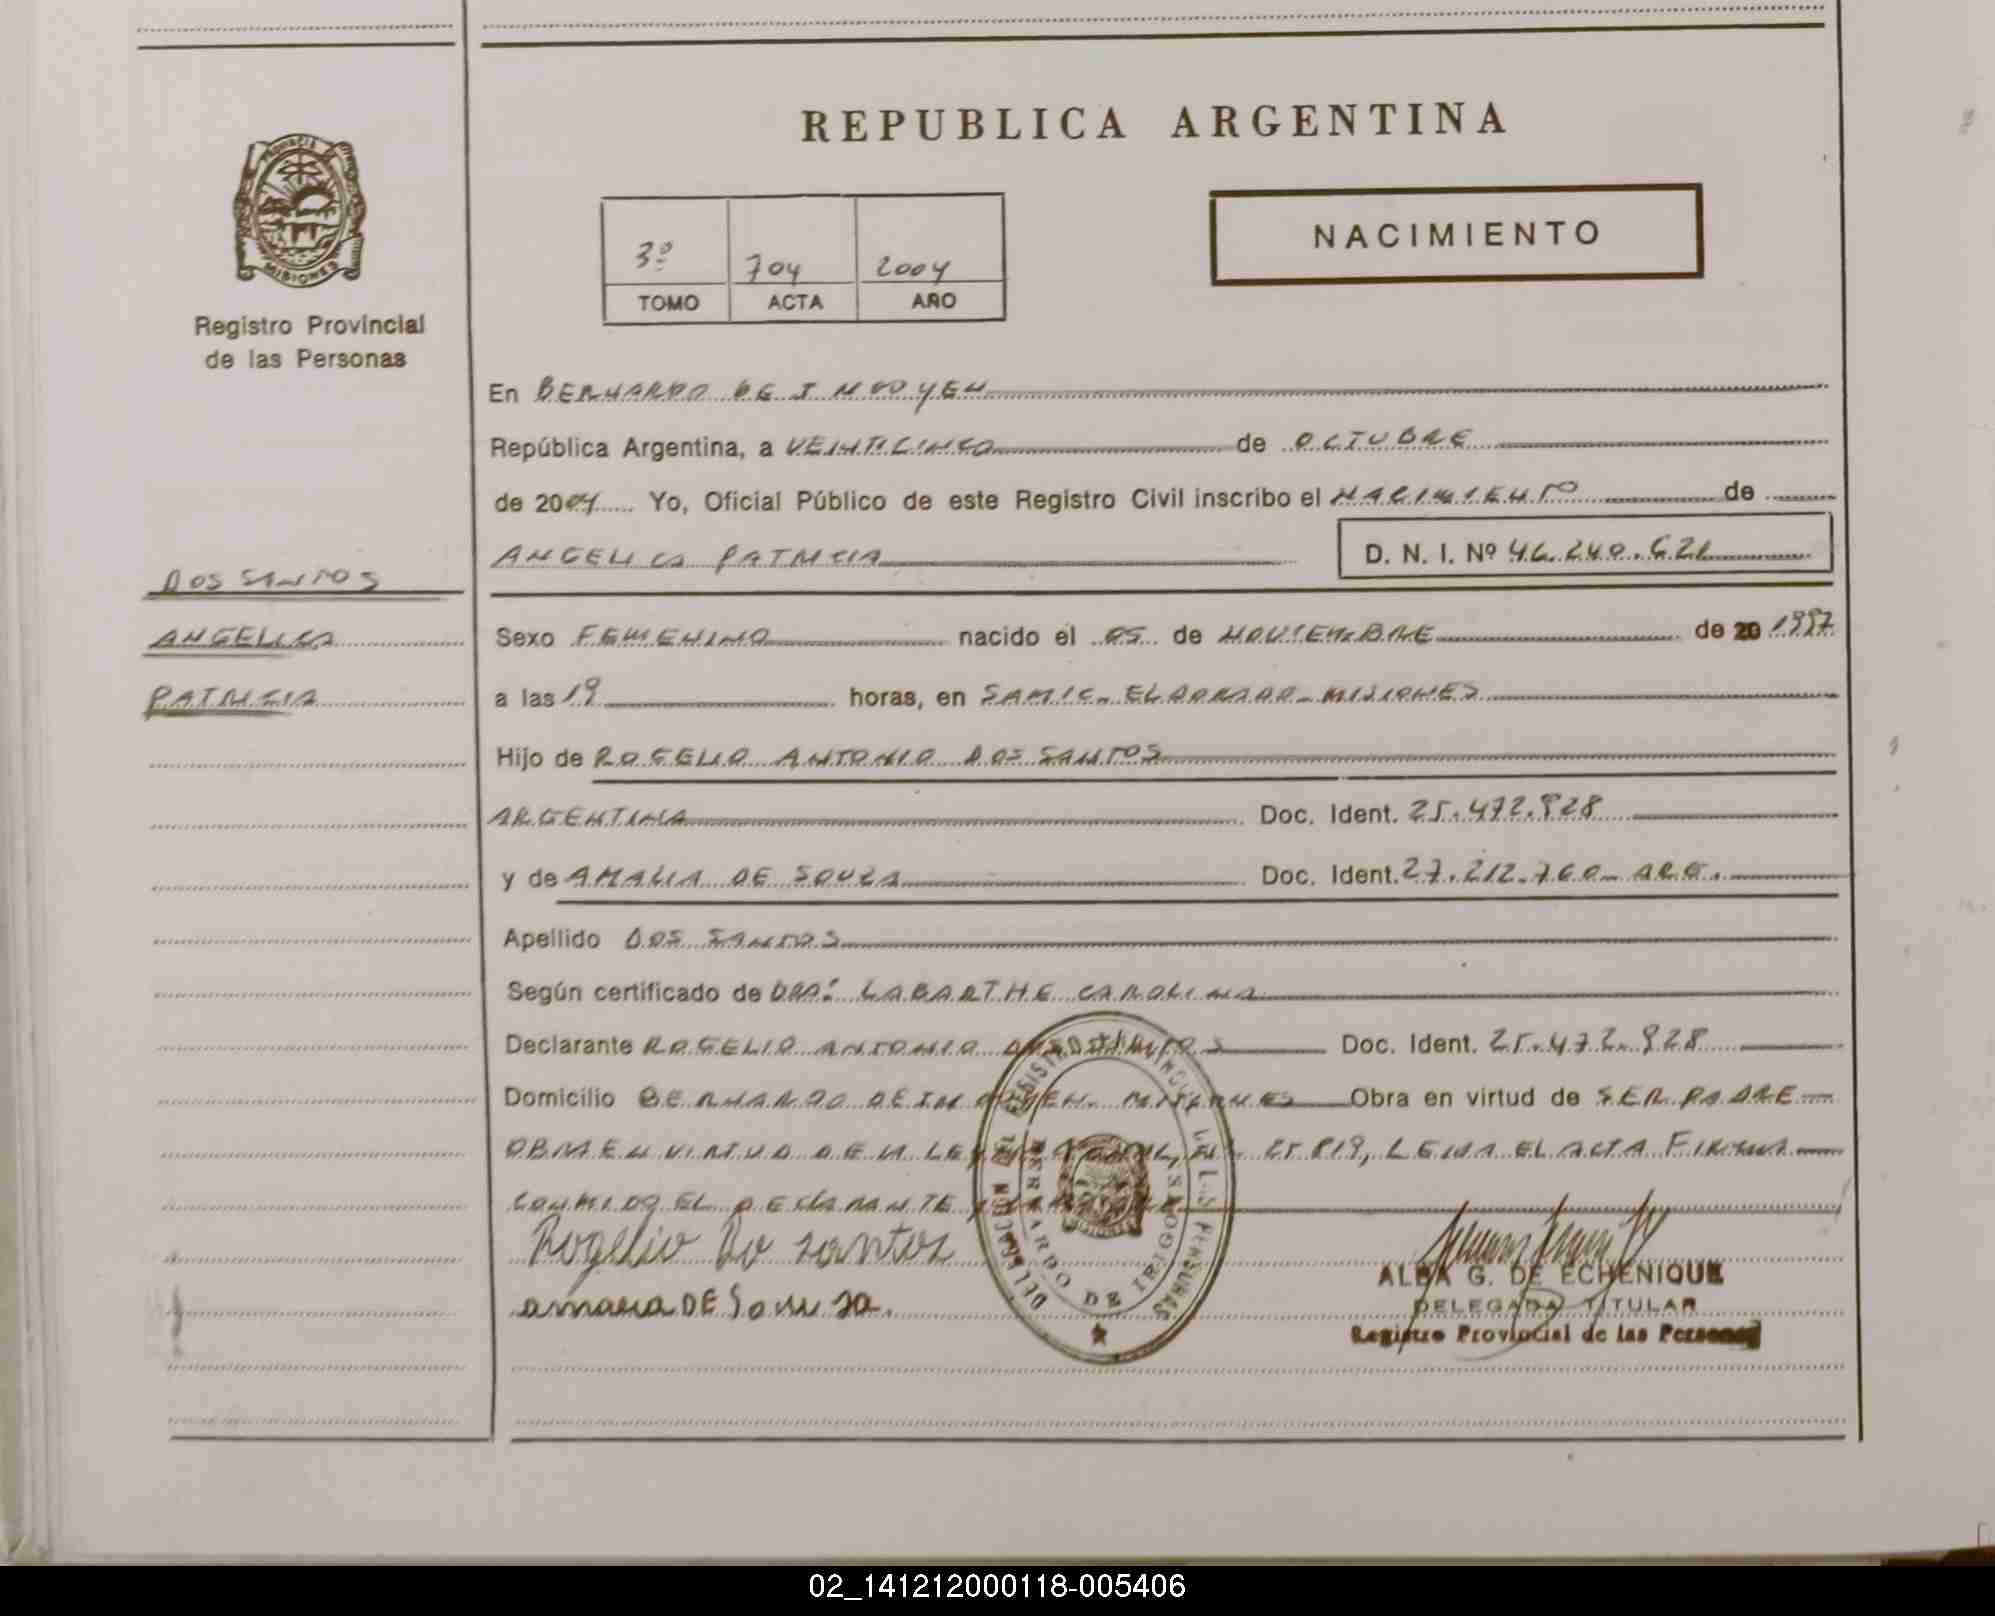 REPUBLICA ARGENTINA
PROVINCIA DE MISIONES
Registro Provincial
de las Personas
3º 704 2004
TOMO ACTA AÑO
NACIMIENTO
En BERNARDO DE IRIGOYEN
República Argentina, a VEINTICINCO de OCTUBRE
de 2004 Yo, Oficial Público de este Registro Civil inscribo el NACIMIENTO de
ANGELICA PATRICIA D. N. I. Nº
DOS SANTOS
ANGELICA
PATRICIA
Sexo FEMENINO nacido el 05 de NOVIEMBRE de 20 1997
a las 19 horas, en SAMIC. ELDORADO - MISIONES
Hijo de ROGELIO ANTONIO DOS SANTOS
ARGENTINA Doc. Ident. 25.472.928
y de AMALIA DE SOUZA Doc. Ident. 27.212.760 - ARG.
Apellido DOS SANTOS
Según certificado de DRA: LABARTHE CAROLINA
Declarante ROGELIO ANTONIO DOS SANTOS Doc. Ident. 25.472.928
Domicilio BERNARDO DE IRIGOYEN. MISIONES Obra en virtud de SER PADRE
OBRA EN VIRTUD DE LA LEY 25 819, LEIDA EL ACTA FIRMA
CONMIGO EL DECLARANTE
Rogelio Do santos
amalia DE Sousa.
DELEGACION DEL REGISTRO PROVINCIAL DE LAS PERSONAS
BERNARDO DE IRIGOYEN
ALBA G. DE ECHENIQUE
DELEGADA TITULAR
Registro Provincial de las Personas
02_141212000118-005406